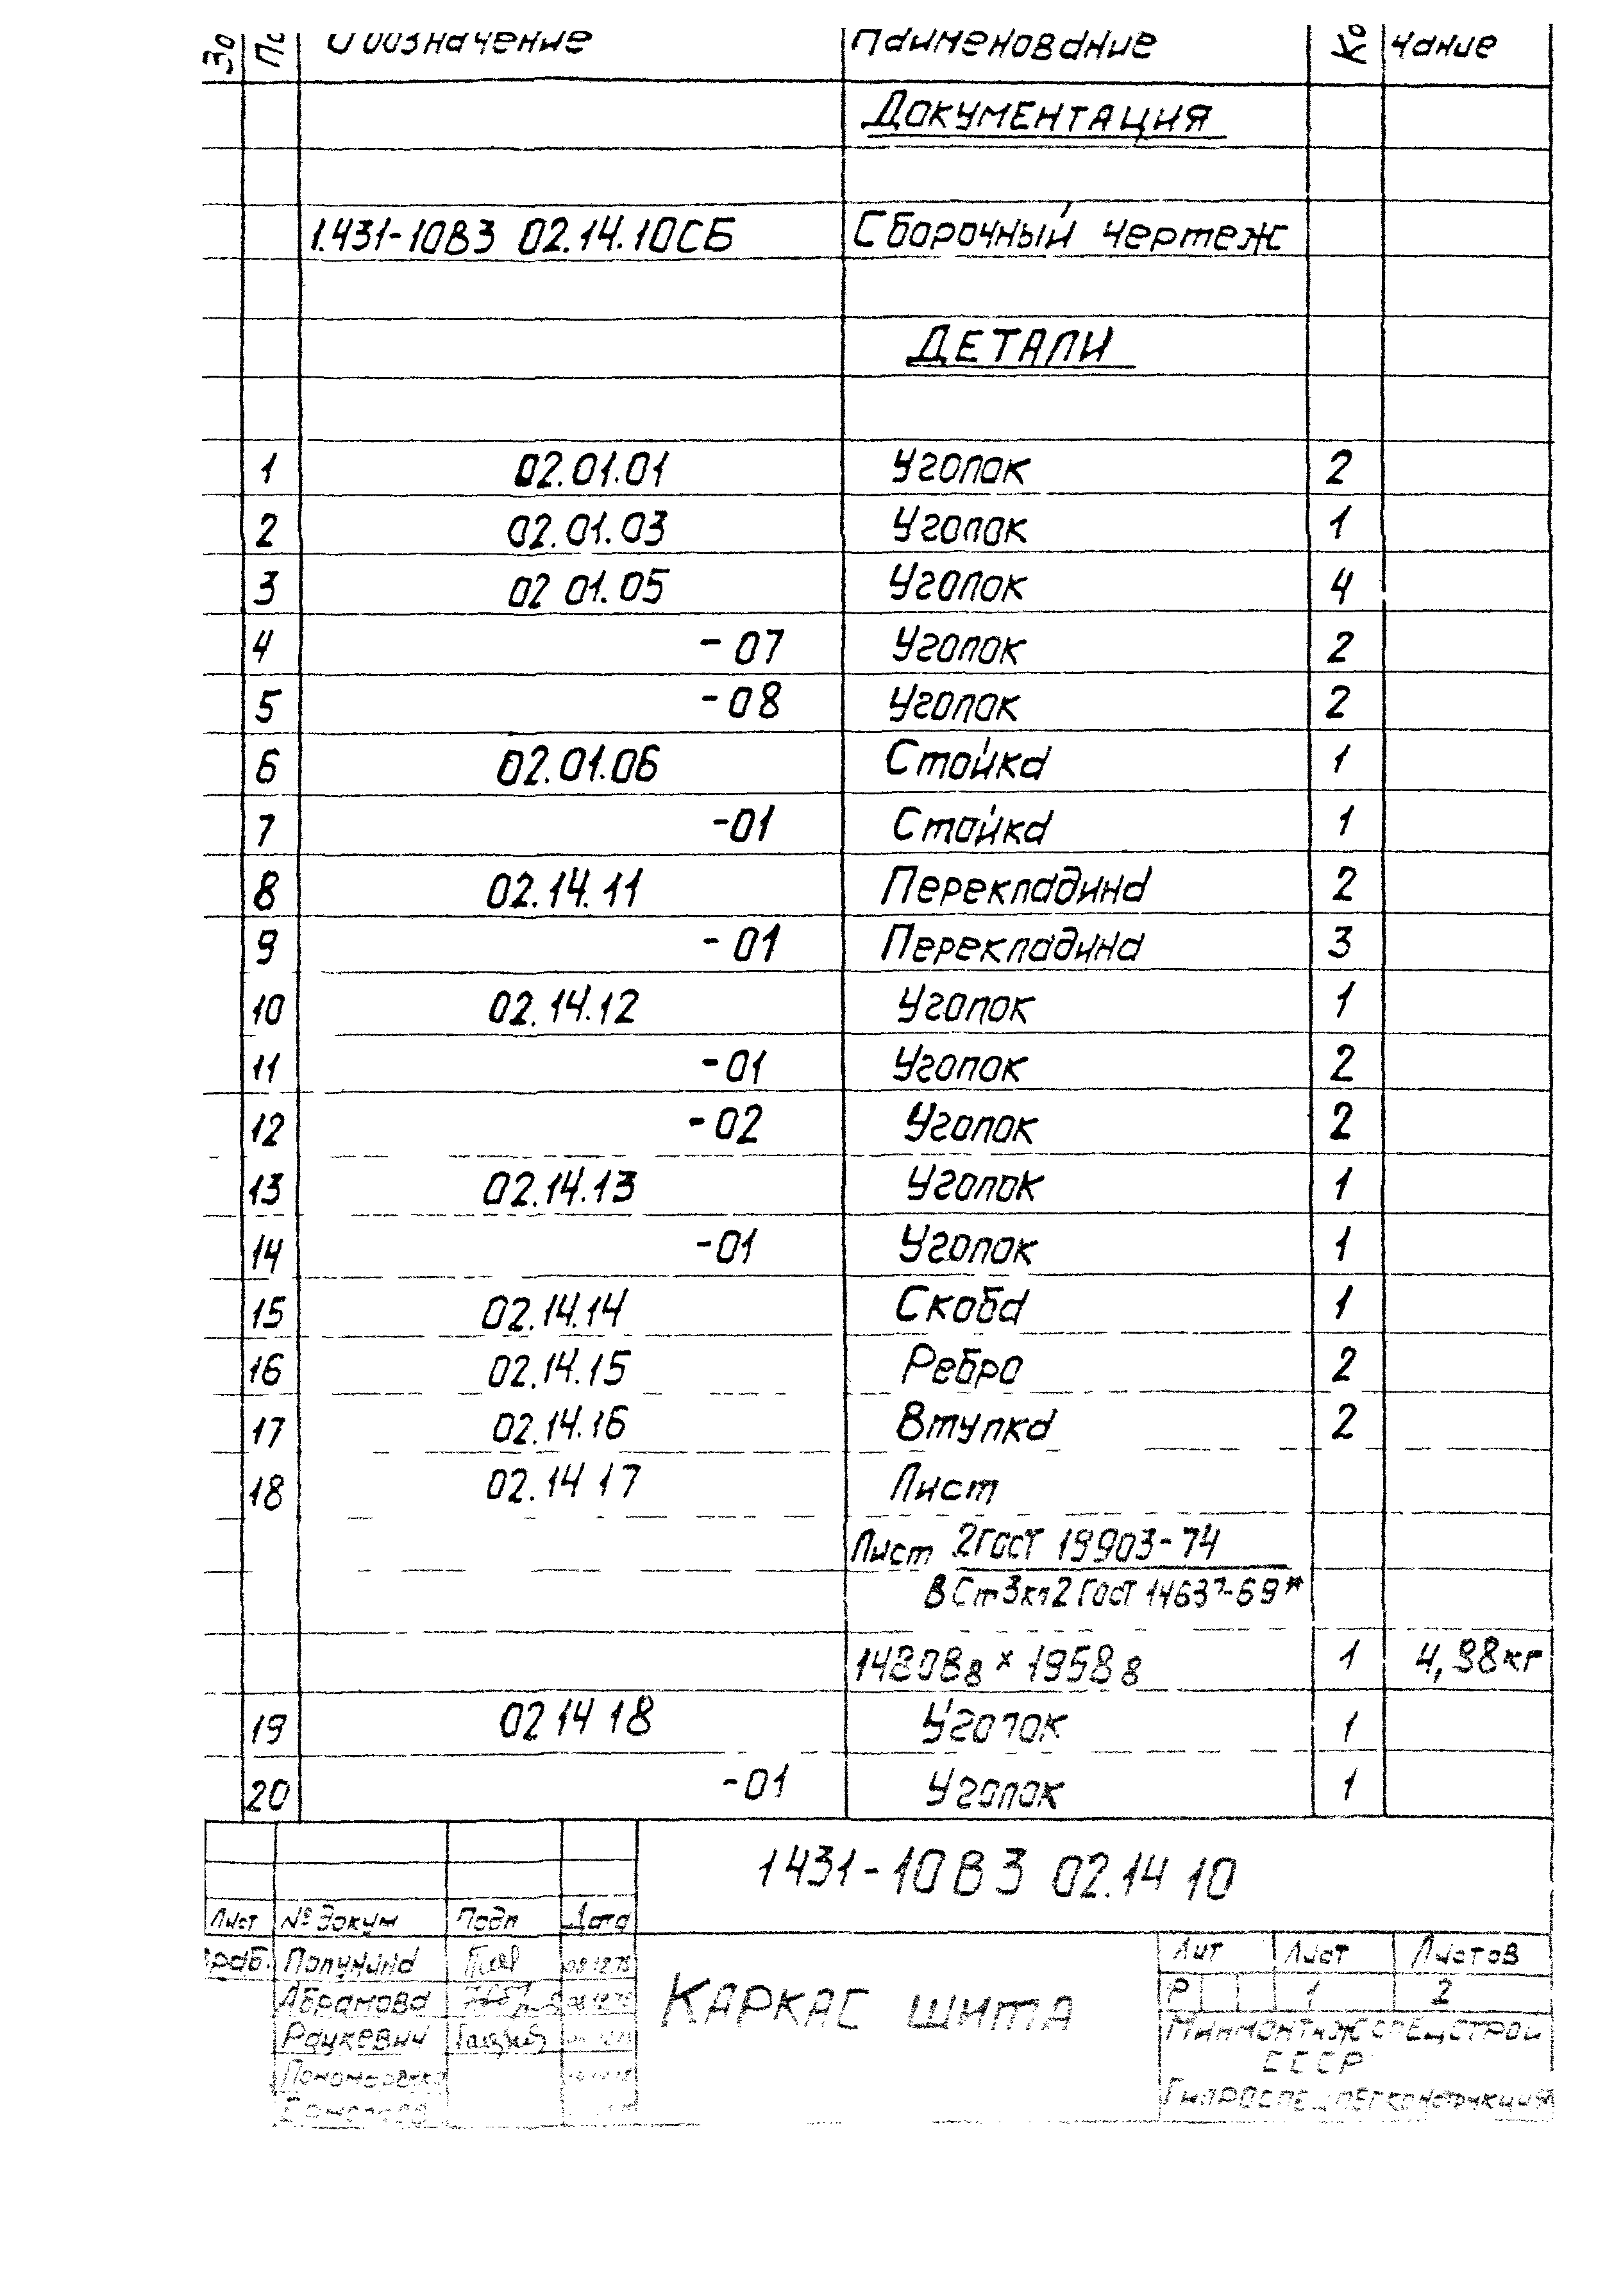 Зо По Обозначение Наименование Ко чание
Документация
1.431-10В3 02.14.10СБ Сборочный чертеж
Детали
1 02.01.01 Уголок 2
2 02.01.03 Уголок 1
3 02 01.05 Уголок 4
4 - 07 Уголок 2
5 - 08 Уголок 2
6 02.01.06 Стойка 1
7 -01 Стойка 1
8 02.14.11 Перекладина 2
9 - 01 Перекладина 3
10 02.14.12 Уголок 1
11 -01 Уголок 2
12 -02 Уголок 2
13 02.14.13 Уголок 1
14 -01 Уголок 1
15 02.14.14 Скоба 1
16 02.14.15 Ребро 2
17 02.14.16 Втулка 2
18 02.14 17 Лист
Лист 2 ГОСТ 19903-74
ВСт3кп2 ГОСТ 14637-69*
1480В8 × 1958 8 1 4,98кг
19 02 14 18 Уголок 1
20 -01 Уголок 1
1431-10В3 02.14 10
Лист № докум Подп Дата
раб. Полунина
Абрамова
Рацкевич
Каркас щита
Лит Лист Листов
Р 1 2
Минмонтажспецстрой
СССР